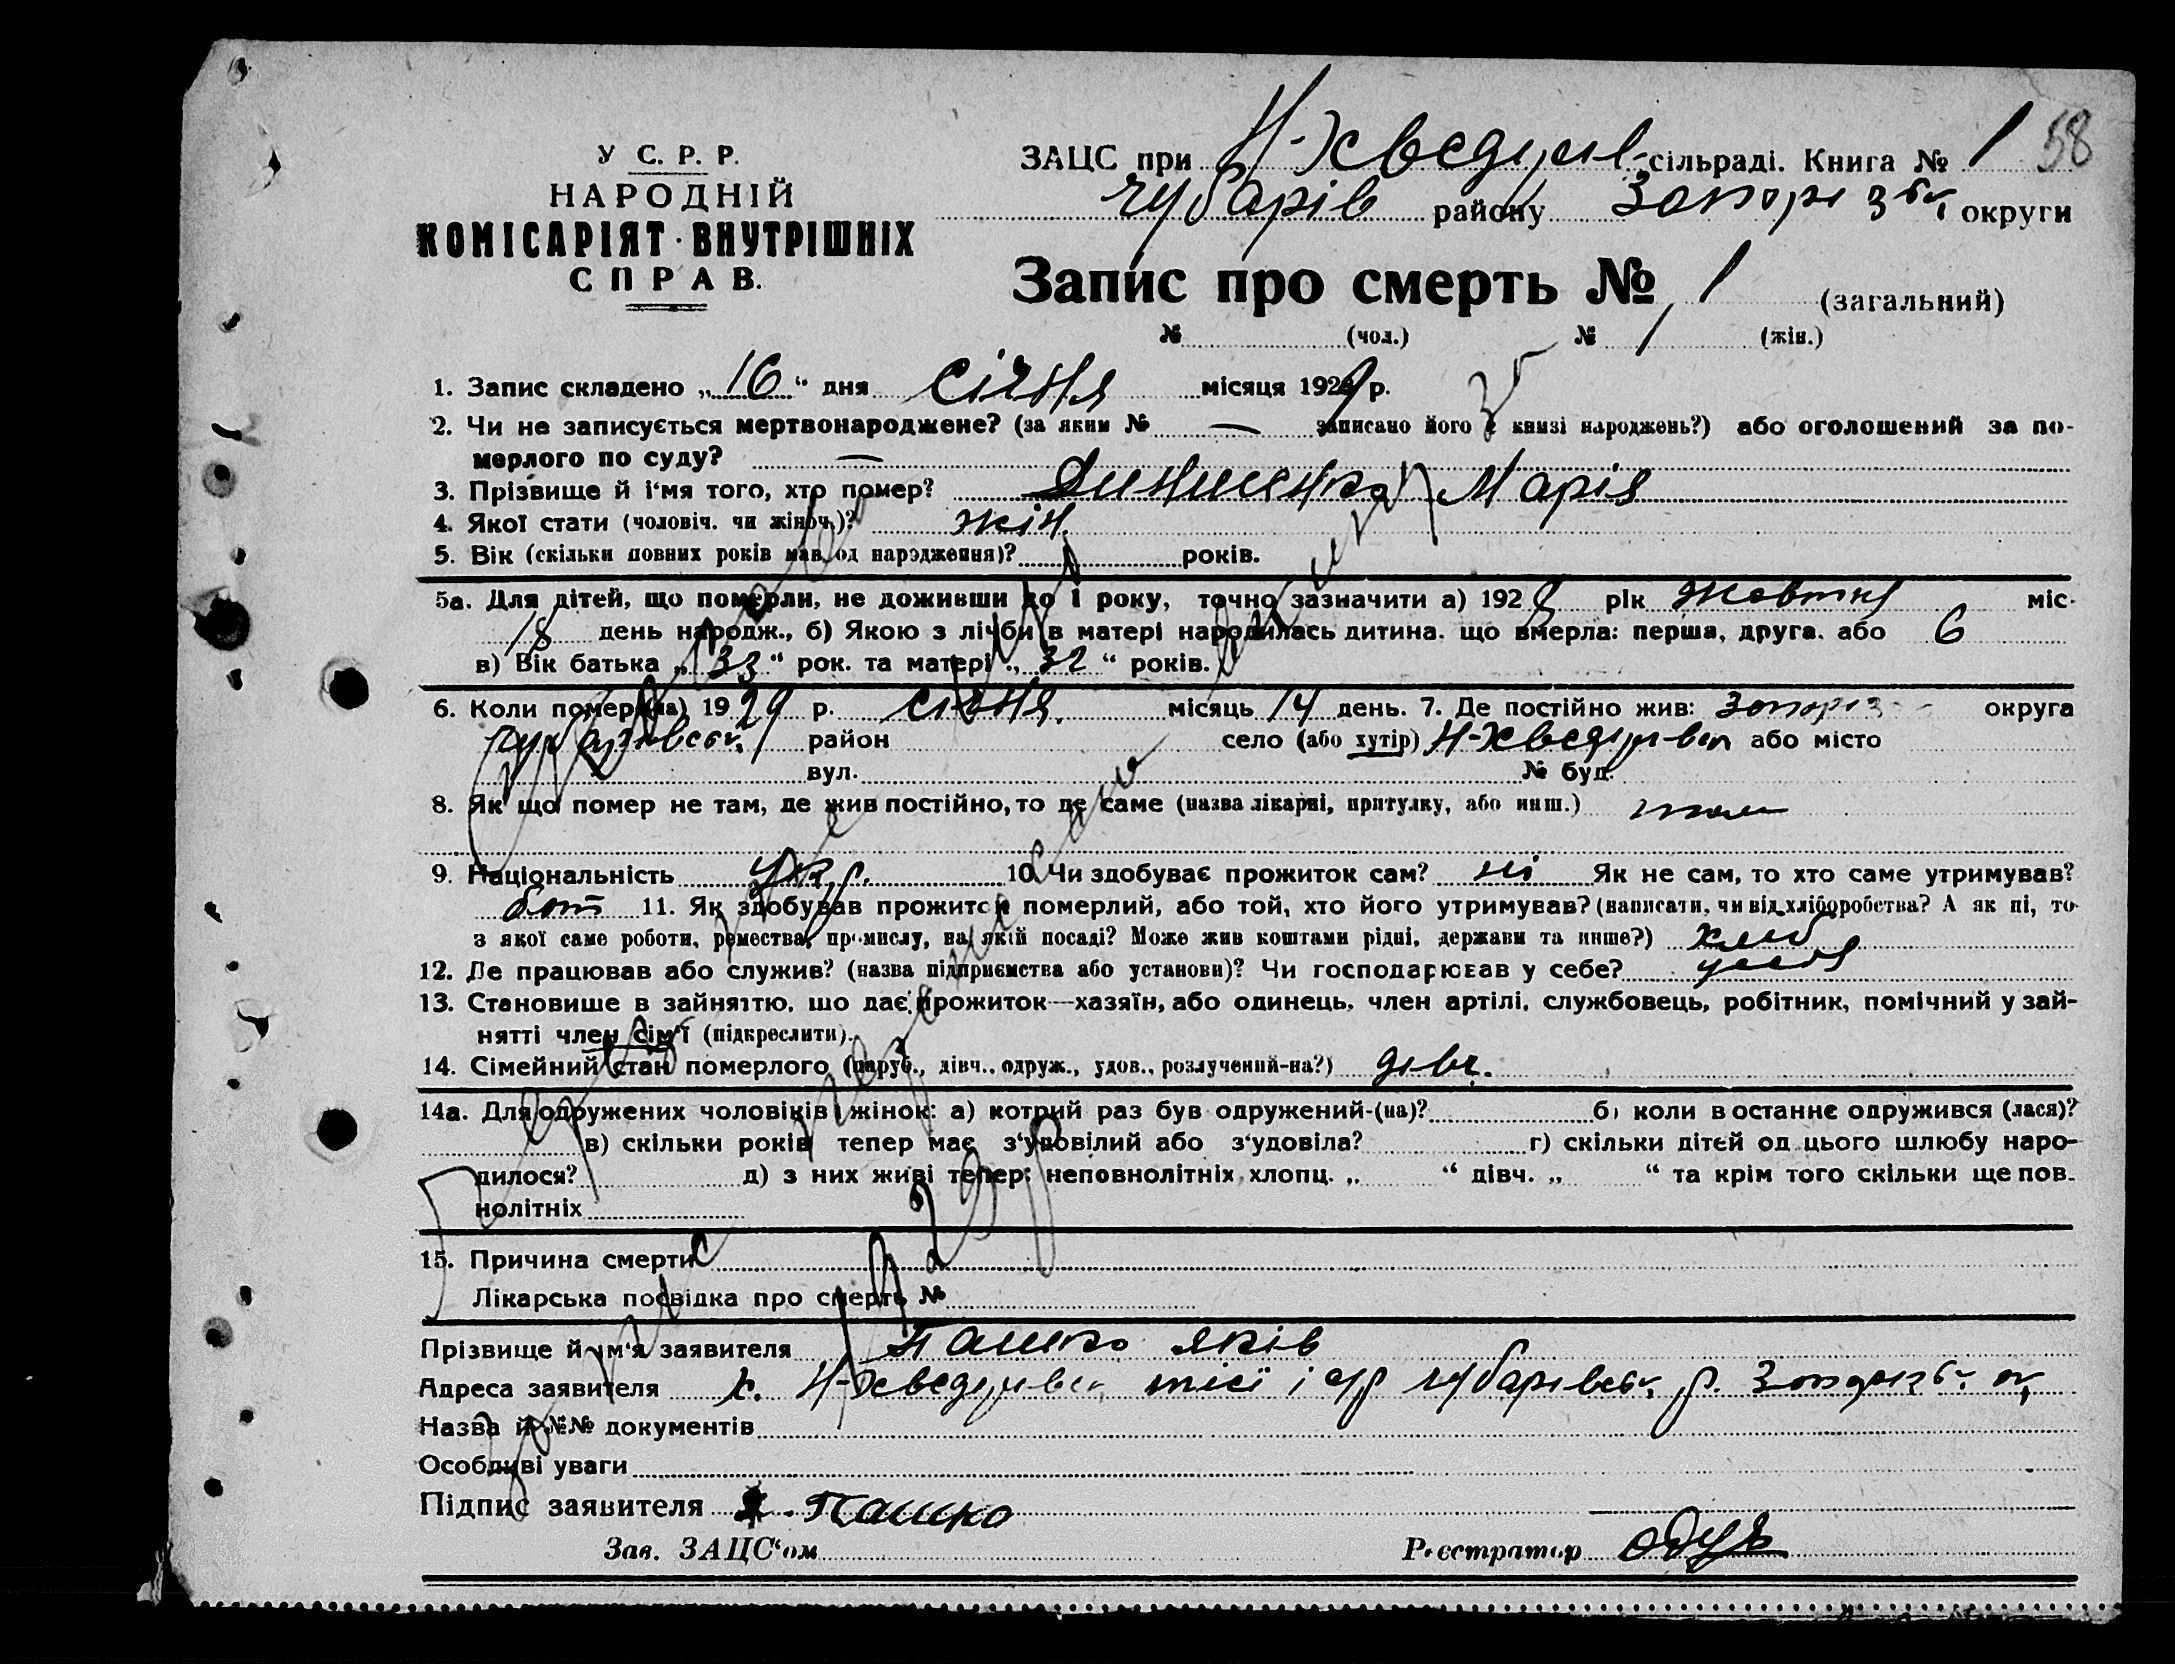 58
У С. Р. Р.
НАРОДНІЙ
КОМІСАРІЯТ ВНУТРІШНІХ
СПРАВ.
ЗАЦС при Н-Хведорів- сільраді. Книга № 1
Чубарів району Запорізьк. округи
Запис про смерть № 1 (загальний)
№ (чол.) № 1 (жін.)
1. Запис складено „16“ дня січня місяця 1929 р.
2. Чи не записується мертвонароджене? (за яким № — записано його в книзі народжень?) або оголошений за по-
мерлого по суду? —
3. Прізвище й і'мя того, хто помер? Марія
4. Якої стати (чоловіч. чи жіноч.)? жін.
5. Вік (скільки повних років мав од нарэдження)? років.
5а. Для дітей, що померли, не доживши до 1 року, точно зазначити а) 1928 рік жовтня міс.
18 день народж., б) Якою з лічби в матері народилась дитина. що вмерла: перша, друга. або 6
в) Вік батька „33“ рок. та матері „32“ років.
6. Коли помер(ла) 1929 р. січня місяць 14 день. 7. Де постійно жив: Запоріз- округа
Чубарівськ. район село (або хутір) Н-Хведорівка або місто
вул. № буд.
8. Як що помер не там, де жив постійно, то де саме (назва лікарні, притулку, або инш.) там
9. Національність укр. 10. Чи здобуває прожиток сам? ні Як не сам, то хто саме утримував?
бат 11. Як здобував прожиток померлий, або той, хто його утримував? (написати, чи від хліборобства? А як ні, то
з якої саме роботи, ремества, промислу, на якій посаді? Може жив коштами рідні, держави та инше?) хліб
12. Де працював або служив? (назва підприємства або установи)? Чи господарював у себе? у себя
13. Становише в зайняттю, шо дає прожиток—хазяїн, або одинець, член артілі, службовець, робітник, помічний у зай-
нятті член сім'ї (підкреслити).
14. Сімейний стан померлого (паруб., дівч., одруж., удов., розлучений-на?) дівч.
14а. Для одружених чоловіків і жінок: а) котрий раз був одружений-(на)? б) коли в останнє одружився (лася)?
в) скільки років тепер має з'удовілий або з'удовіла? г) скільки дітей од цього шлюбу наро-
дилося? д) з них живі тепер: неповнолітніх хлопц. „ “ дівч. „ “ та крім того скільки ще пов-
нолітніх
15. Причина смерти
Лікарська посвідка про смерть №
Прізвище й им'я заявителя Пашко Яків
Адреса заявителя х. Н-Хведорівка Чубарівськ. р. Запорізьк. ок.
Назва й №№ документів
Особливі уваги
Підпис заявителя Я. Пашко
Зав. ЗАЦС'ом Реєстратор